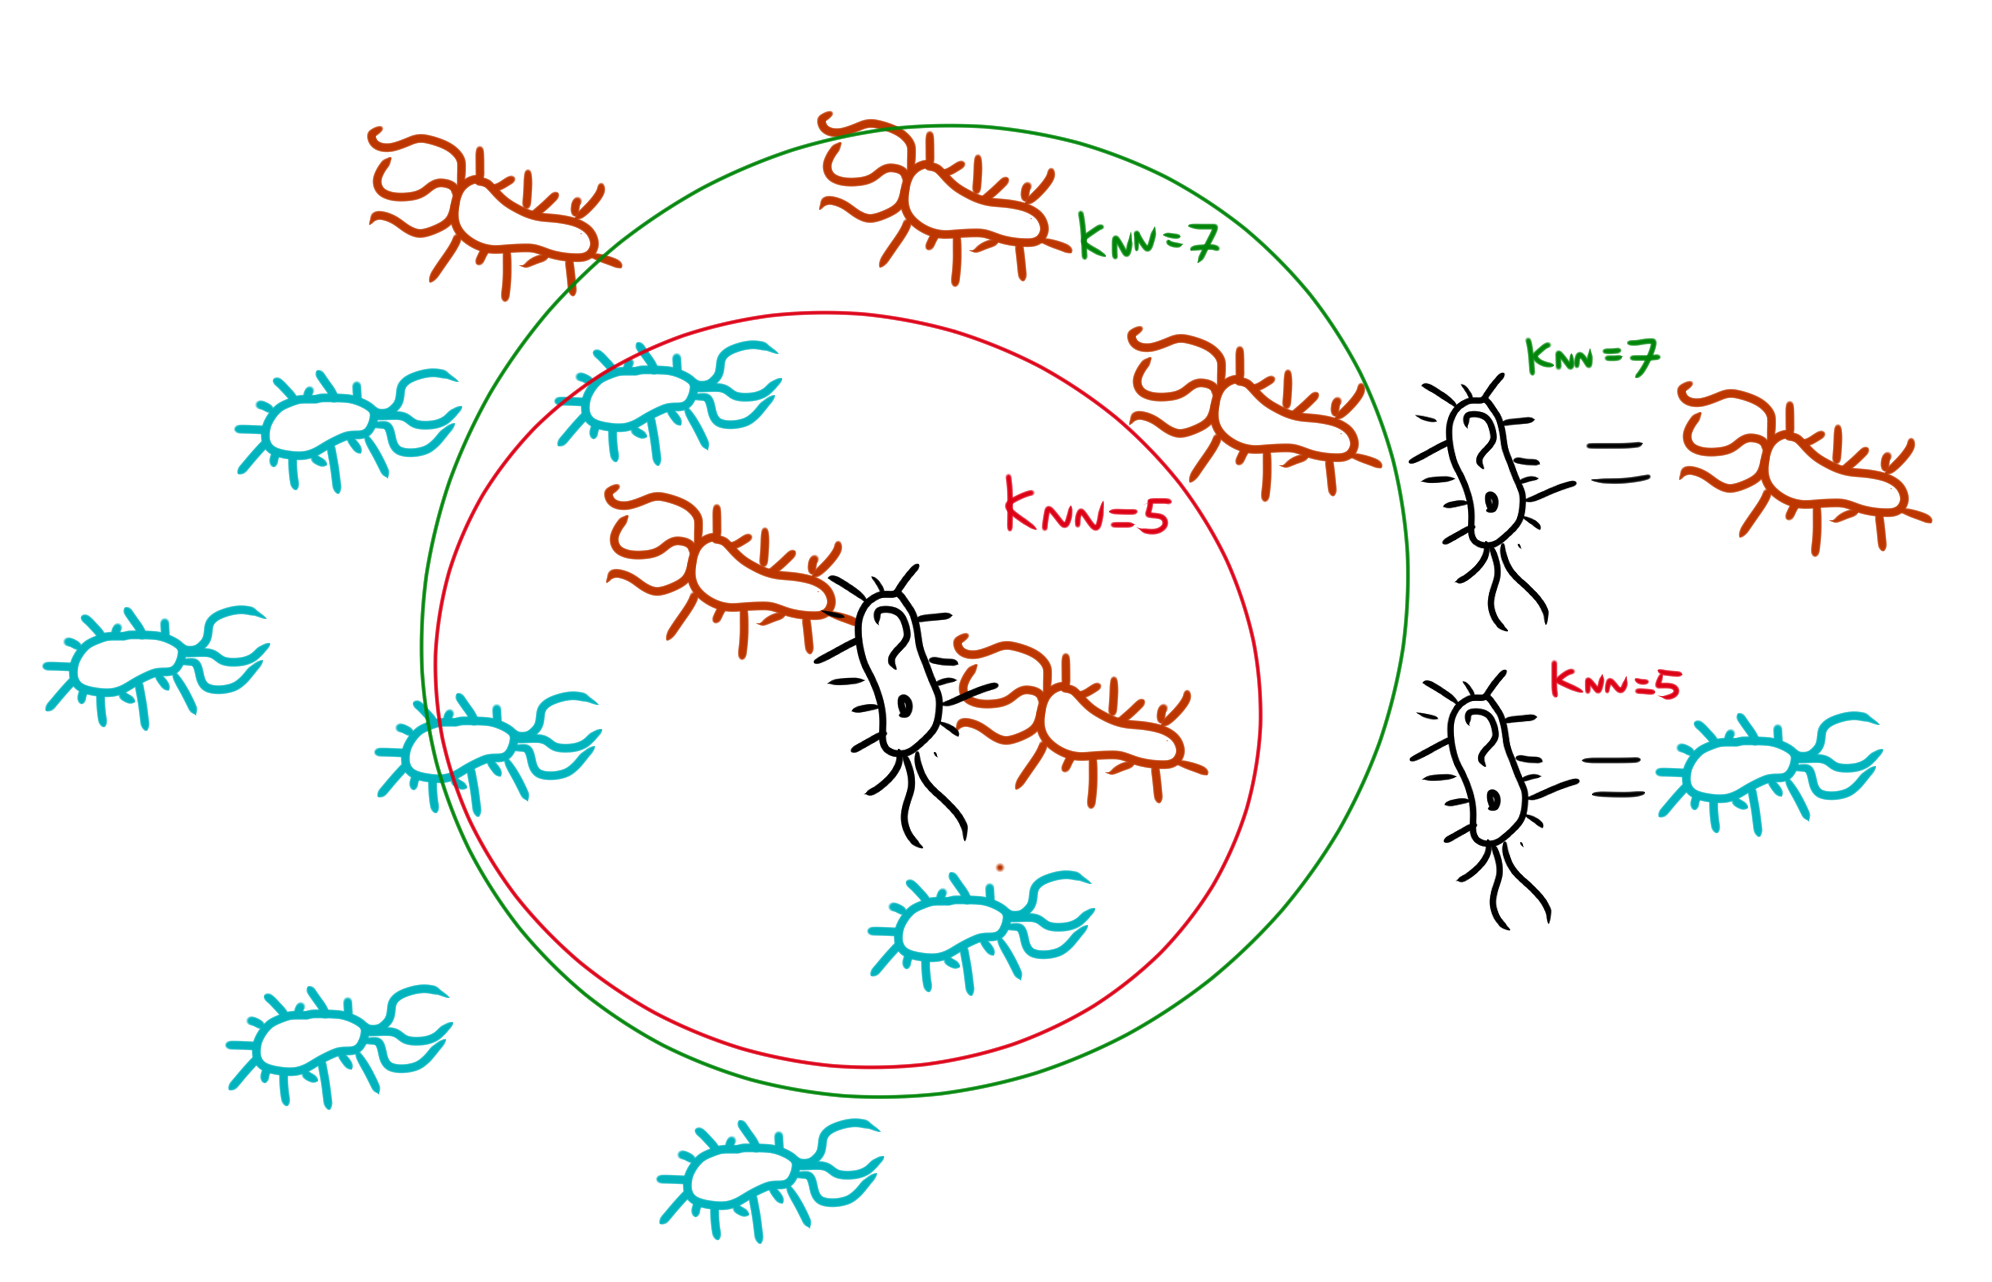 KNN=7
KNN=5
?
KNN=7
?
=
KNN=5
?
=